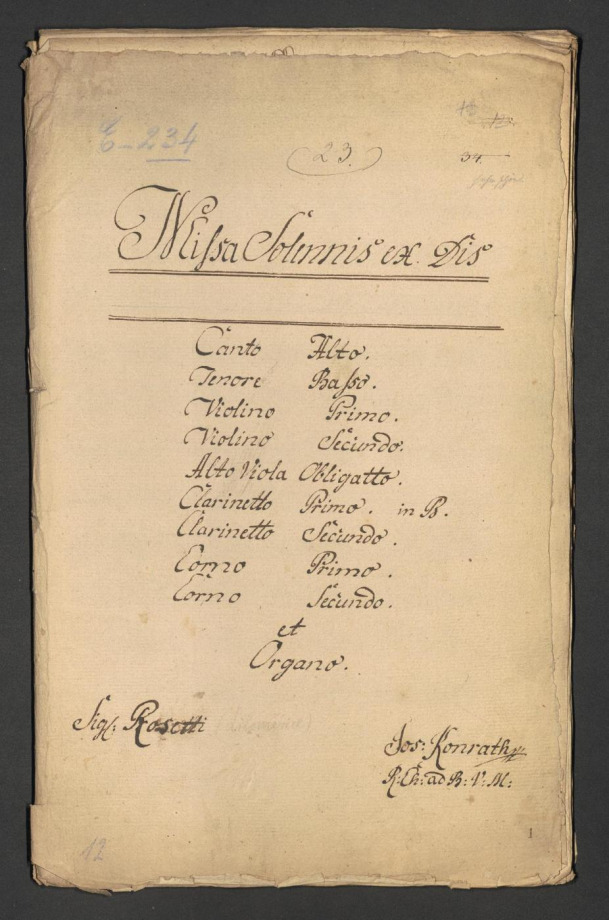 C-234
23.
34.
Missa Solennis ex Dis
Canto Alto.
Tenore Basso.
Violino Primo.
Violino Secundo.
Alto Viola Obligatto.
Clarinetto Primo. in B.
Clarinetto Secundo.
Corno Primo.
Corno Secundo.
et
Organo.
Sigl: Rosetti
Jos: Konrath
R: Ch: ad B: V: M:
12
1